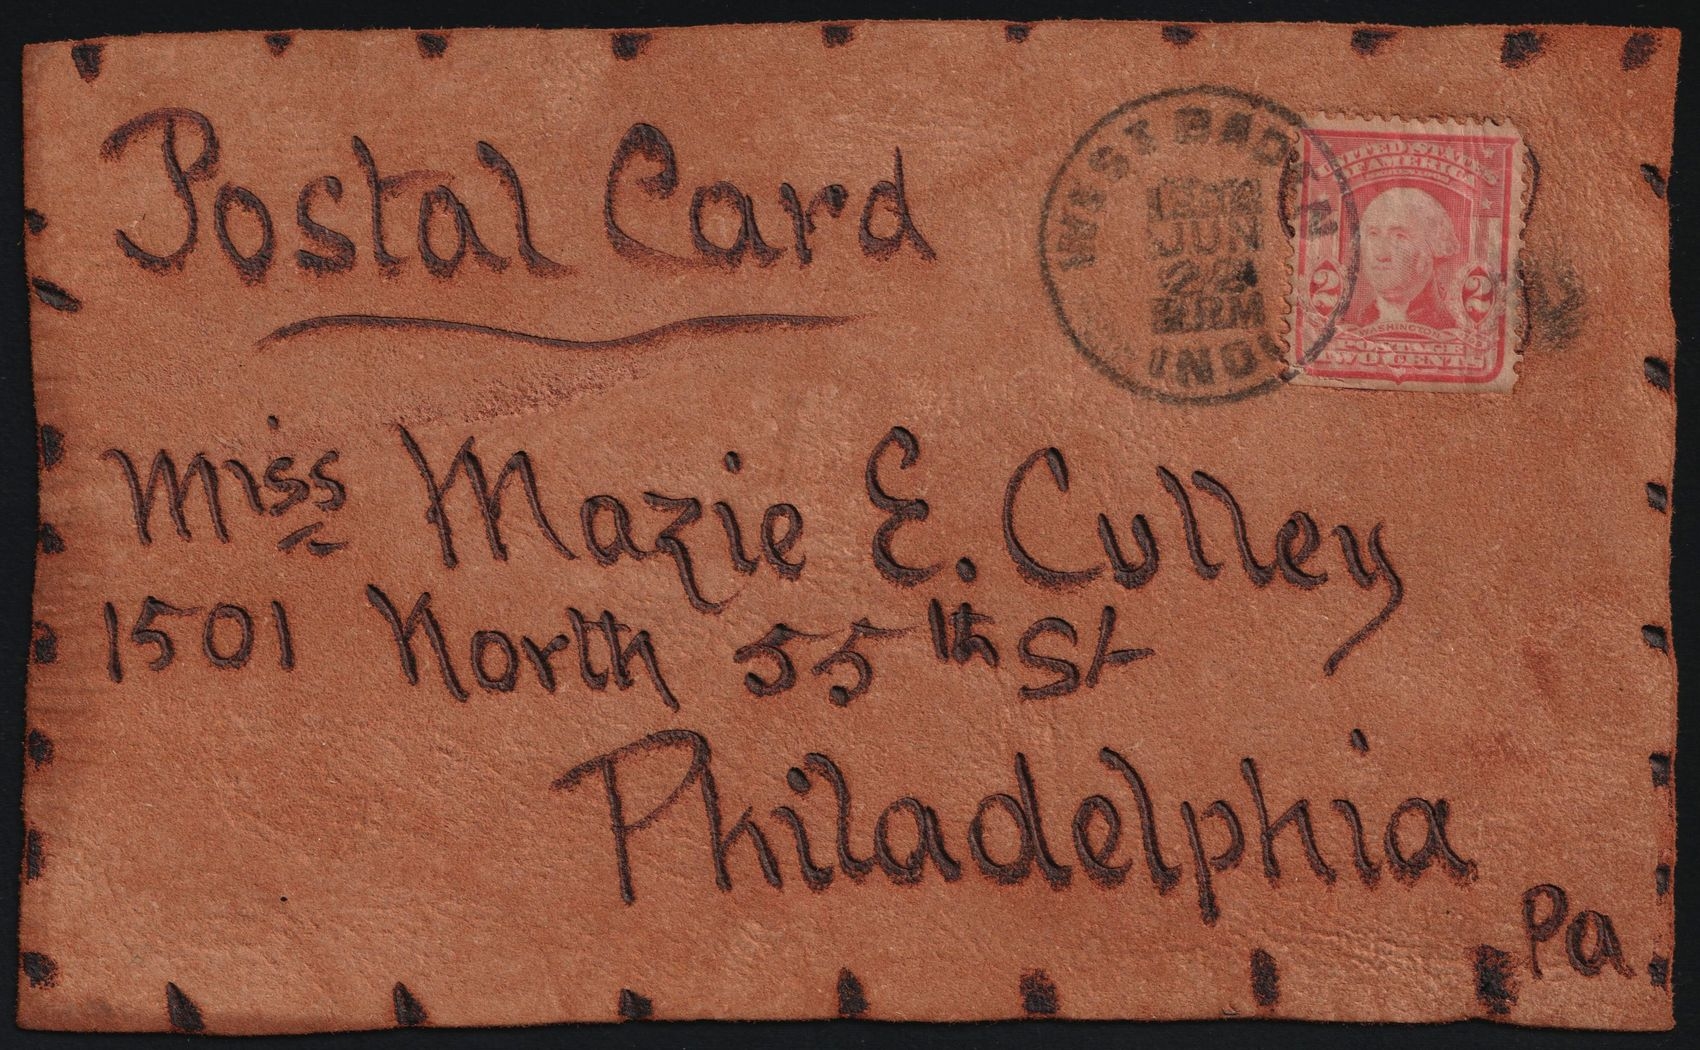 Postal Card
WEST BADEN
JUN
22
PM
IND.
UNITED STATES
OF AMERICA
2 2
WASHINGTON
POSTAGE
TWO CENTS
Miss Mazie E. Culley
1501 North 55th St
Philadelphia
Pa